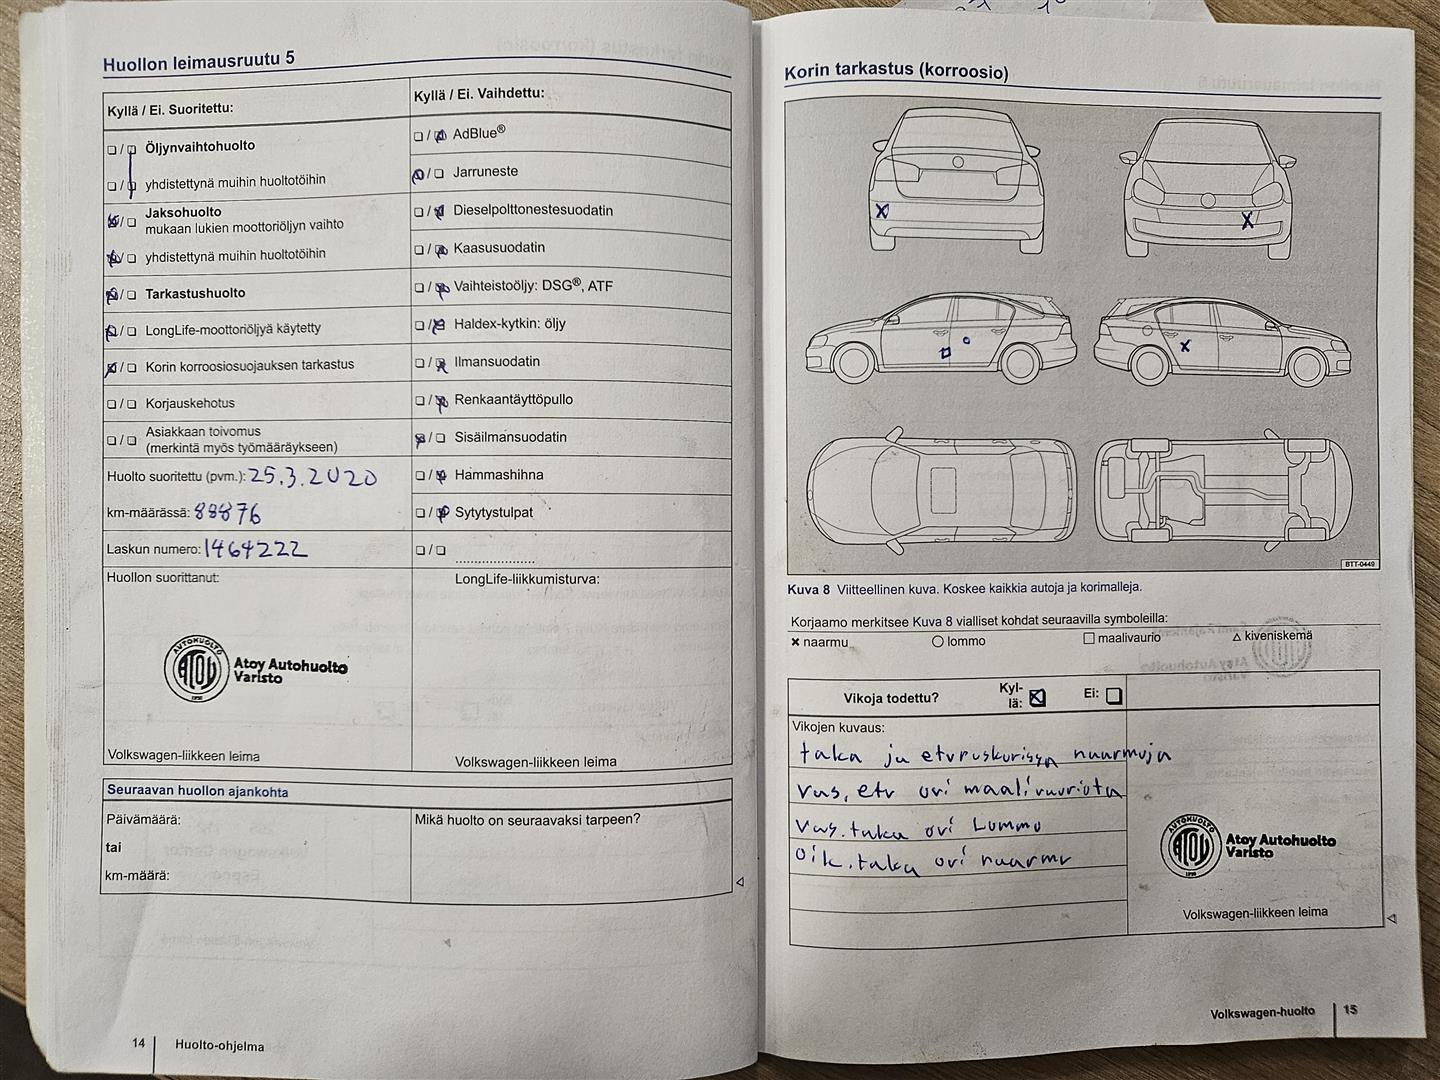 Huollon leimausruutu 5
Kyllä / Ei. Suoritettu:
Öljynvaihtohuolto
yhdistettynä muihin huoltotöihin
Jaksohuolto
mukaan lukien moottoriöljyn vaihto
yhdistettynä muihin huoltotöihin
Tarkastushuolto
LongLife-moottoriöljyä käytetty
Korin korroosiosuojauksen tarkastus
Korjauskehotus
Asiakkaan toivomus
(merkintä myös työmääräykseen)
Huolto suoritettu (pvm.): 25.3.2020
km-määrässä: 88876
Laskun numero: 1464222
Kyllä / Ei. Vaihdettu:
AdBlue®
Jarruneste
Dieselpolttonestesuodatin
Kaasusuodatin
Vaihteistoöljy: DSG®, ATF
Haldex-kytkin: öljy
Ilmansuodatin
Renkaantäyttöpullo
Sisäilmansuodatin
Hammashihna
Sytytystulpat
Huollon suorittanut:
AUTOHUOLTO
ATOY
1930
Atoy Autohuolto
Varisto
Volkswagen-liikkeen leima
LongLife-liikkumisturva:
Volkswagen-liikkeen leima
Seuraavan huollon ajankohta
Päivämäärä:
tai
km-määrä:
Mikä huolto on seuraavaksi tarpeen?
14 Huolto-ohjelma
Korin tarkastus (korroosio)
BTT-0449
Kuva 8 Viitteellinen kuva. Koskee kaikkia autoja ja korimalleja.
Korjaamo merkitsee Kuva 8 vialliset kohdat seuraavilla symboleilla:
naarmu lommo maalivaurio kiveniskemä
Vikoja todettu? Kyl-
lä: Ei:
Vikojen kuvaus:
taka ja etupuskurissa naarmuja
vas. etu ovi maalivauriota
vas. taka ovi Lommo
oik. taka ovi naarmu
AUTOHUOLTO
ATOY
1930
Atoy Autohuolto
Varisto
Volkswagen-liikkeen leima
Volkswagen-huolto 15